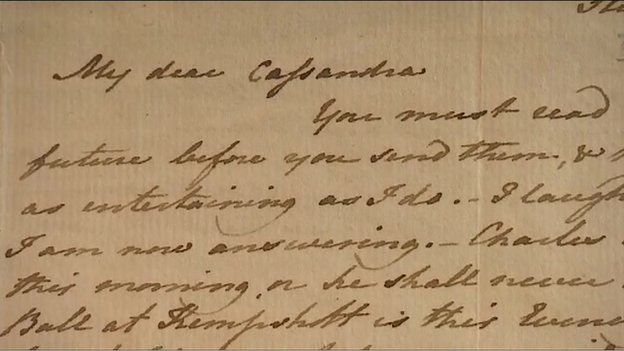 My dear Caſsandra
You must read
future before you send them, &
as entertaining as I do. – I laugh
I am now answering. – Charles
this morning, or he shall never
Ball at Kempshott is this Even